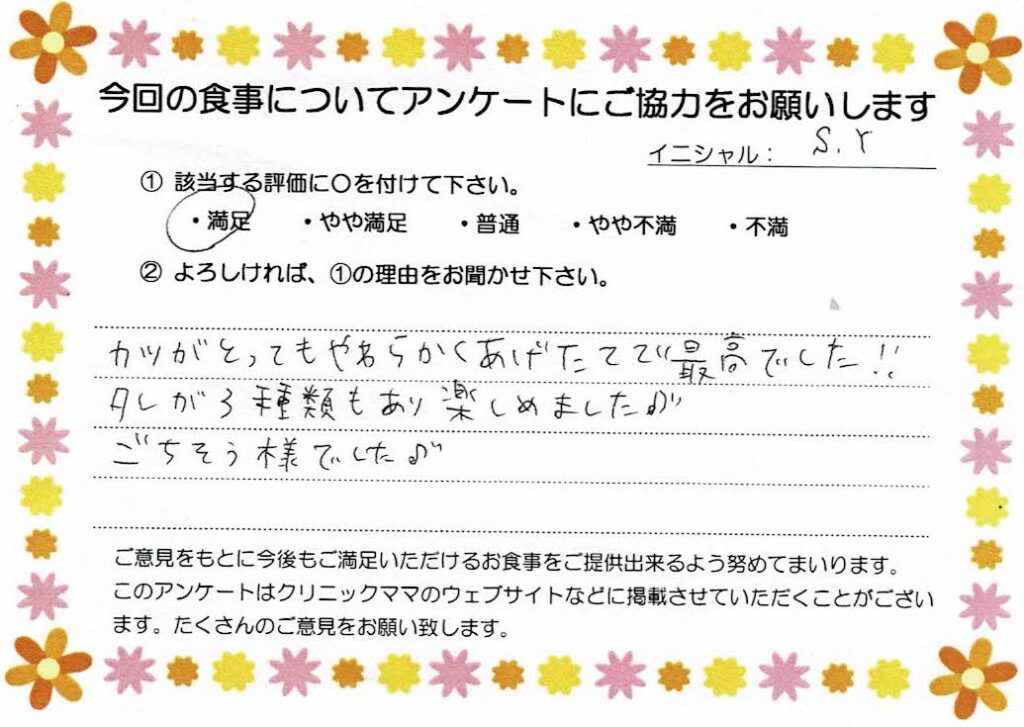 今回の食事についてアンケートにご協力をお願いします
イニシャル： S.Y
① 該当する評価に〇を付けて下さい。
・満足 ・やや満足 ・普通 ・やや不満 ・不満
② よろしければ、①の理由をお聞かせ下さい。
カツがとってもやわらかくあげたてで最高でした!!
タレが3種類もあり楽しめました♪
ごちそう様でした♪
ご意見をもとに今後もご満足いただけるお食事をご提供出来るよう努めてまいります。
このアンケートはクリニックママのウェブサイトなどに掲載させていただくことがござい
ます。たくさんのご意見をお願い致します。